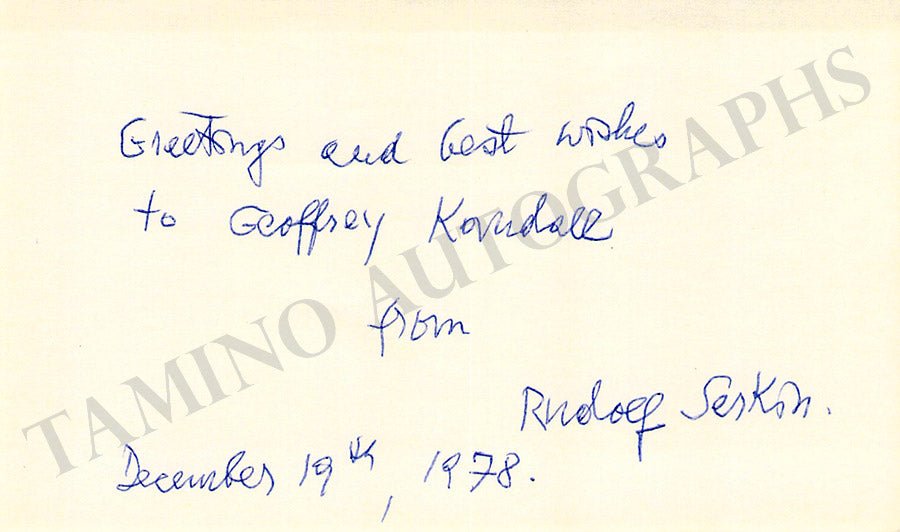 Greetings and best wishes
to Geoffrey Korndall
from
Rudolf Serkin.
December 19th, 1978.
TAMINO AUTOGRAPHS